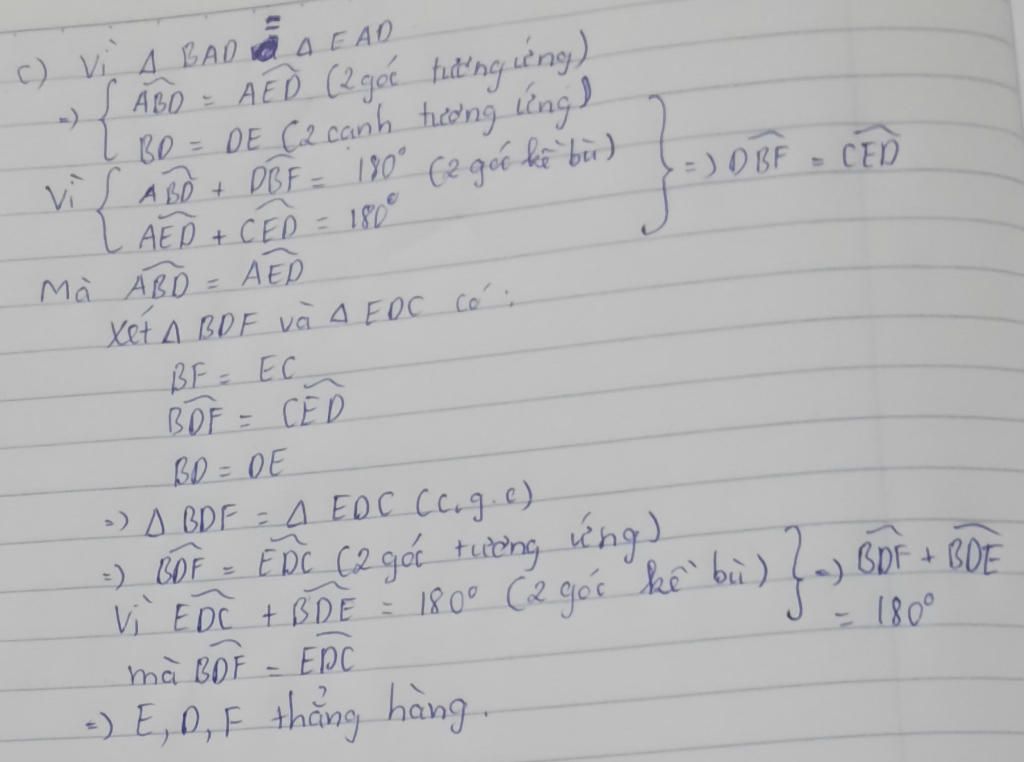 c) Vì Δ BAD = Δ EAD
=) { \widehat{ABD} = \widehat{AED} (2 góc tương ứng)
BD = DE (2 cạnh tương ứng)
Vì { \widehat{ABD} + \widehat{DBF} = 180° (2 góc kề bù) } =) \widehat{DBF} = \widehat{CED}
\widehat{AED} + \widehat{CED} = 180°
Mà \widehat{ABD} = \widehat{AED}
Xét Δ BDF và Δ EDC có:
BF = EC
\widehat{BDF} = \widehat{CED}
BD = DE
=) Δ BDF = Δ EDC (c.g.c)
=) \widehat{BDF} = \widehat{EDC} (2 góc tương ứng)
Vì \widehat{EDC} + \widehat{BDE} = 180° (2 góc kề bù) } =) \widehat{BDF} + \widehat{BDE}
= 180°
mà \widehat{BDF} = \widehat{EDC}
=) E, D, F thẳng hàng.